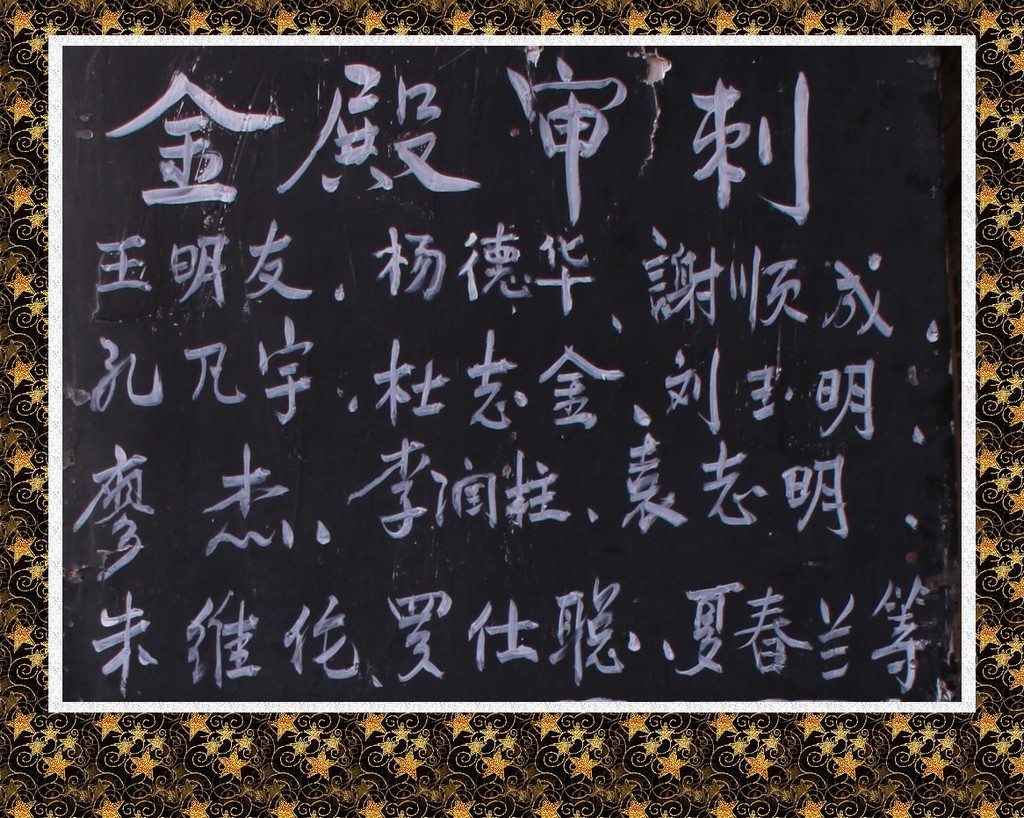 金殿审刺
王明友、杨德华、謝顺成、
孔凡宇、杜志金、刘玉明、
廖杰、李润柱、袁志明、
朱维伦、罗仕聪、夏春兰等